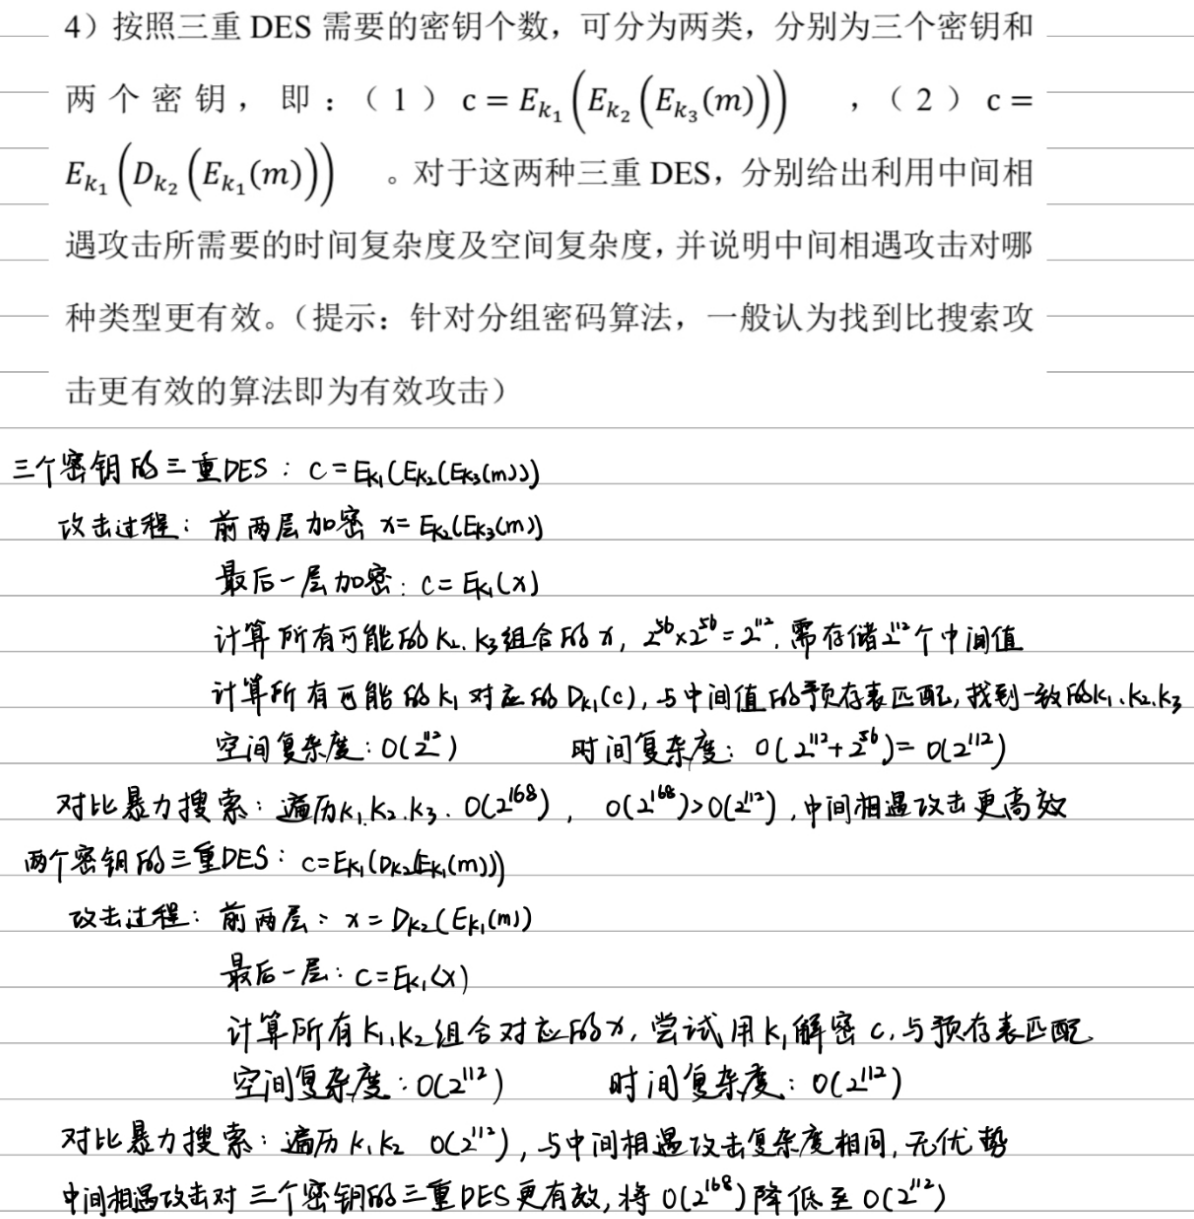 4）按照三重 DES 需要的密钥个数，可分为两类，分别为三个密钥和
两个密钥，即：（1） c = E_{k_1}(E_{k_2}(E_{k_3}(m))) ，（2） c =
E_{k_1}(D_{k_2}(E_{k_1}(m))) 。对于这两种三重 DES，分别给出利用中间相
遇攻击所需要的时间复杂度及空间复杂度，并说明中间相遇攻击对哪
种类型更有效。（提示：针对分组密码算法，一般认为找到比搜索攻
击更有效的算法即为有效攻击）
三个密钥的三重DES：c = E_{k_1}(E_{k_2}(E_{k_3}(m)))
攻击过程：前两层加密 x = E_{k_2}(E_{k_3}(m))
最后一层加密：c = E_{k_1}(x)
计算所有可能的k₂、k₃组合的x，2^{56}×2^{56}=2^{112}，需存储2^{112}个中间值
计算所有可能的k₁对应的D_{k_1}(c)，与中间值的预存表匹配，找到一致的k₁、k₂、k₃
空间复杂度：O(2^{112}) 时间复杂度：O(2^{112}+2^{56})=O(2^{112})
对比暴力搜索：遍历k₁、k₂、k₃．O(2^{168})，O(2^{168})>O(2^{112})，中间相遇攻击更高效
两个密钥的三重DES：c=E_{k_1}(D_{k_2}(E_{k_1}(m)))
攻击过程：前两层：x = D_{k_2}(E_{k_1}(m))
最后一层：c=E_{k_1}(x)
计算所有k₁,k₂组合对应的x，尝试用k₁解密c，与预存表匹配
空间复杂度：O(2^{112}) 时间复杂度：O(2^{112})
对比暴力搜索：遍历k₁k₂ O(2^{112})，与中间相遇攻击复杂度相同，无优势
中间相遇攻击对三个密钥的三重DES更有效，将O(2^{168})降低至O(2^{112})